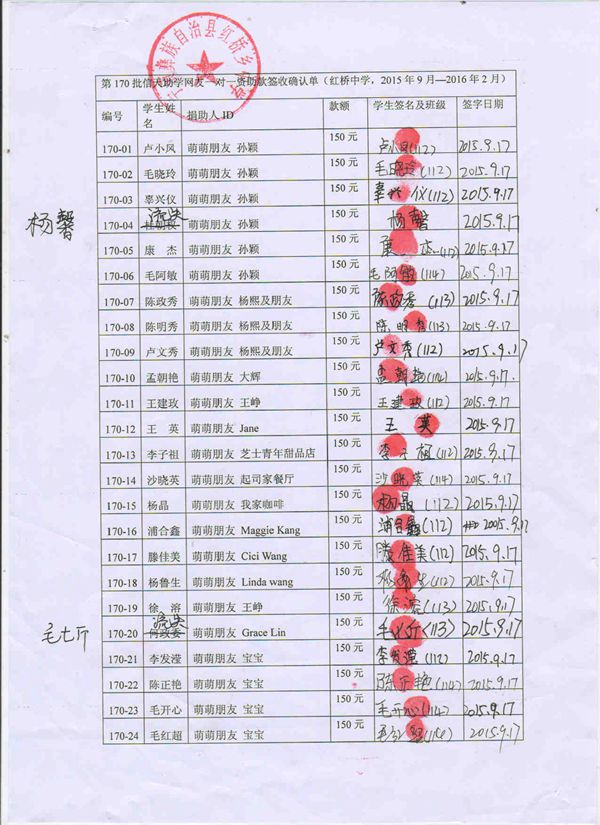 自治县红桥乡
第170批信天助学网友一对一资助款签收确认单（红桥中学，2015年9月—2016年2月）
编号 学生姓名 捐助人ID 款额 学生签名及班级 签字日期
170-01 卢小凤 萌萌朋友 孙颖 150元 卢小凤(112) 2015.9.17
170-02 毛晓玲 萌萌朋友 孙颖 150元 毛晓玲(112) 2015.9.17
170-03 辜兴仪 萌萌朋友 孙颖 150元 辜兴仪(112) 2015.9.17
杨馨 170-04 流失 萌萌朋友 孙颖 150元 杨馨 2015.9.17
170-05 康 杰 萌萌朋友 孙颖 150元 康 杰(112) 2015.9.17
170-06 毛阿敏 萌萌朋友 孙颖 150元 毛阿敏(114) 2015.9.17
170-07 陈政秀 萌萌朋友 杨熙及朋友 150元 陈政秀(113) 2015.9.17
170-08 陈明秀 萌萌朋友 杨熙及朋友 150元 陈明秀(113) 2015.9.17
170-09 卢文秀 萌萌朋友 杨熙及朋友 150元 卢文秀(112) 2015.9.17
170-10 孟朝艳 萌萌朋友 大辉 150元 孟朝艳(114) 2015.9.17
170-11 王建玫 萌萌朋友 王峥 150元 王建玫(112) 2015.9.17
170-12 王 英 萌萌朋友 Jane 150元 王 英 2015.9.17
170-13 李子祖 萌萌朋友 芝士青年甜品店 150元 李子祖(112) 2015.9.17
170-14 沙晓英 萌萌朋友 起司家餐厅 150元 沙晓英(114) 2015.9.17
170-15 杨晶 萌萌朋友 我家咖啡 150元 杨晶(112) 2015.9.17
170-16 浦合鑫 萌萌朋友 Maggie Kang 150元 浦合鑫(112) 2005.9.17
170-17 滕佳美 萌萌朋友 Cici Wang 150元 滕佳美(112) 2015.9.17
170-18 杨鲁生 萌萌朋友 Linda wang 150元 杨鲁生(112) 2015.9.17
170-19 徐 溶 萌萌朋友 王峥 150元 徐溶(113) 2015.9.17
毛七斤 170-20 流失 何政委 萌萌朋友 Grace Lin 150元 毛七斤(113) 2015.9.17
170-21 李发滢 萌萌朋友 宝宝 150元 李发滢(112) 2015.9.17
170-22 陈正艳 萌萌朋友 宝宝 150元 陈正艳(114) 2015.9.17
170-23 毛开心 萌萌朋友 宝宝 150元 毛开心(114) 2015.9.17
170-24 毛红超 萌萌朋友 宝宝 150元 毛红超 2015.9.17